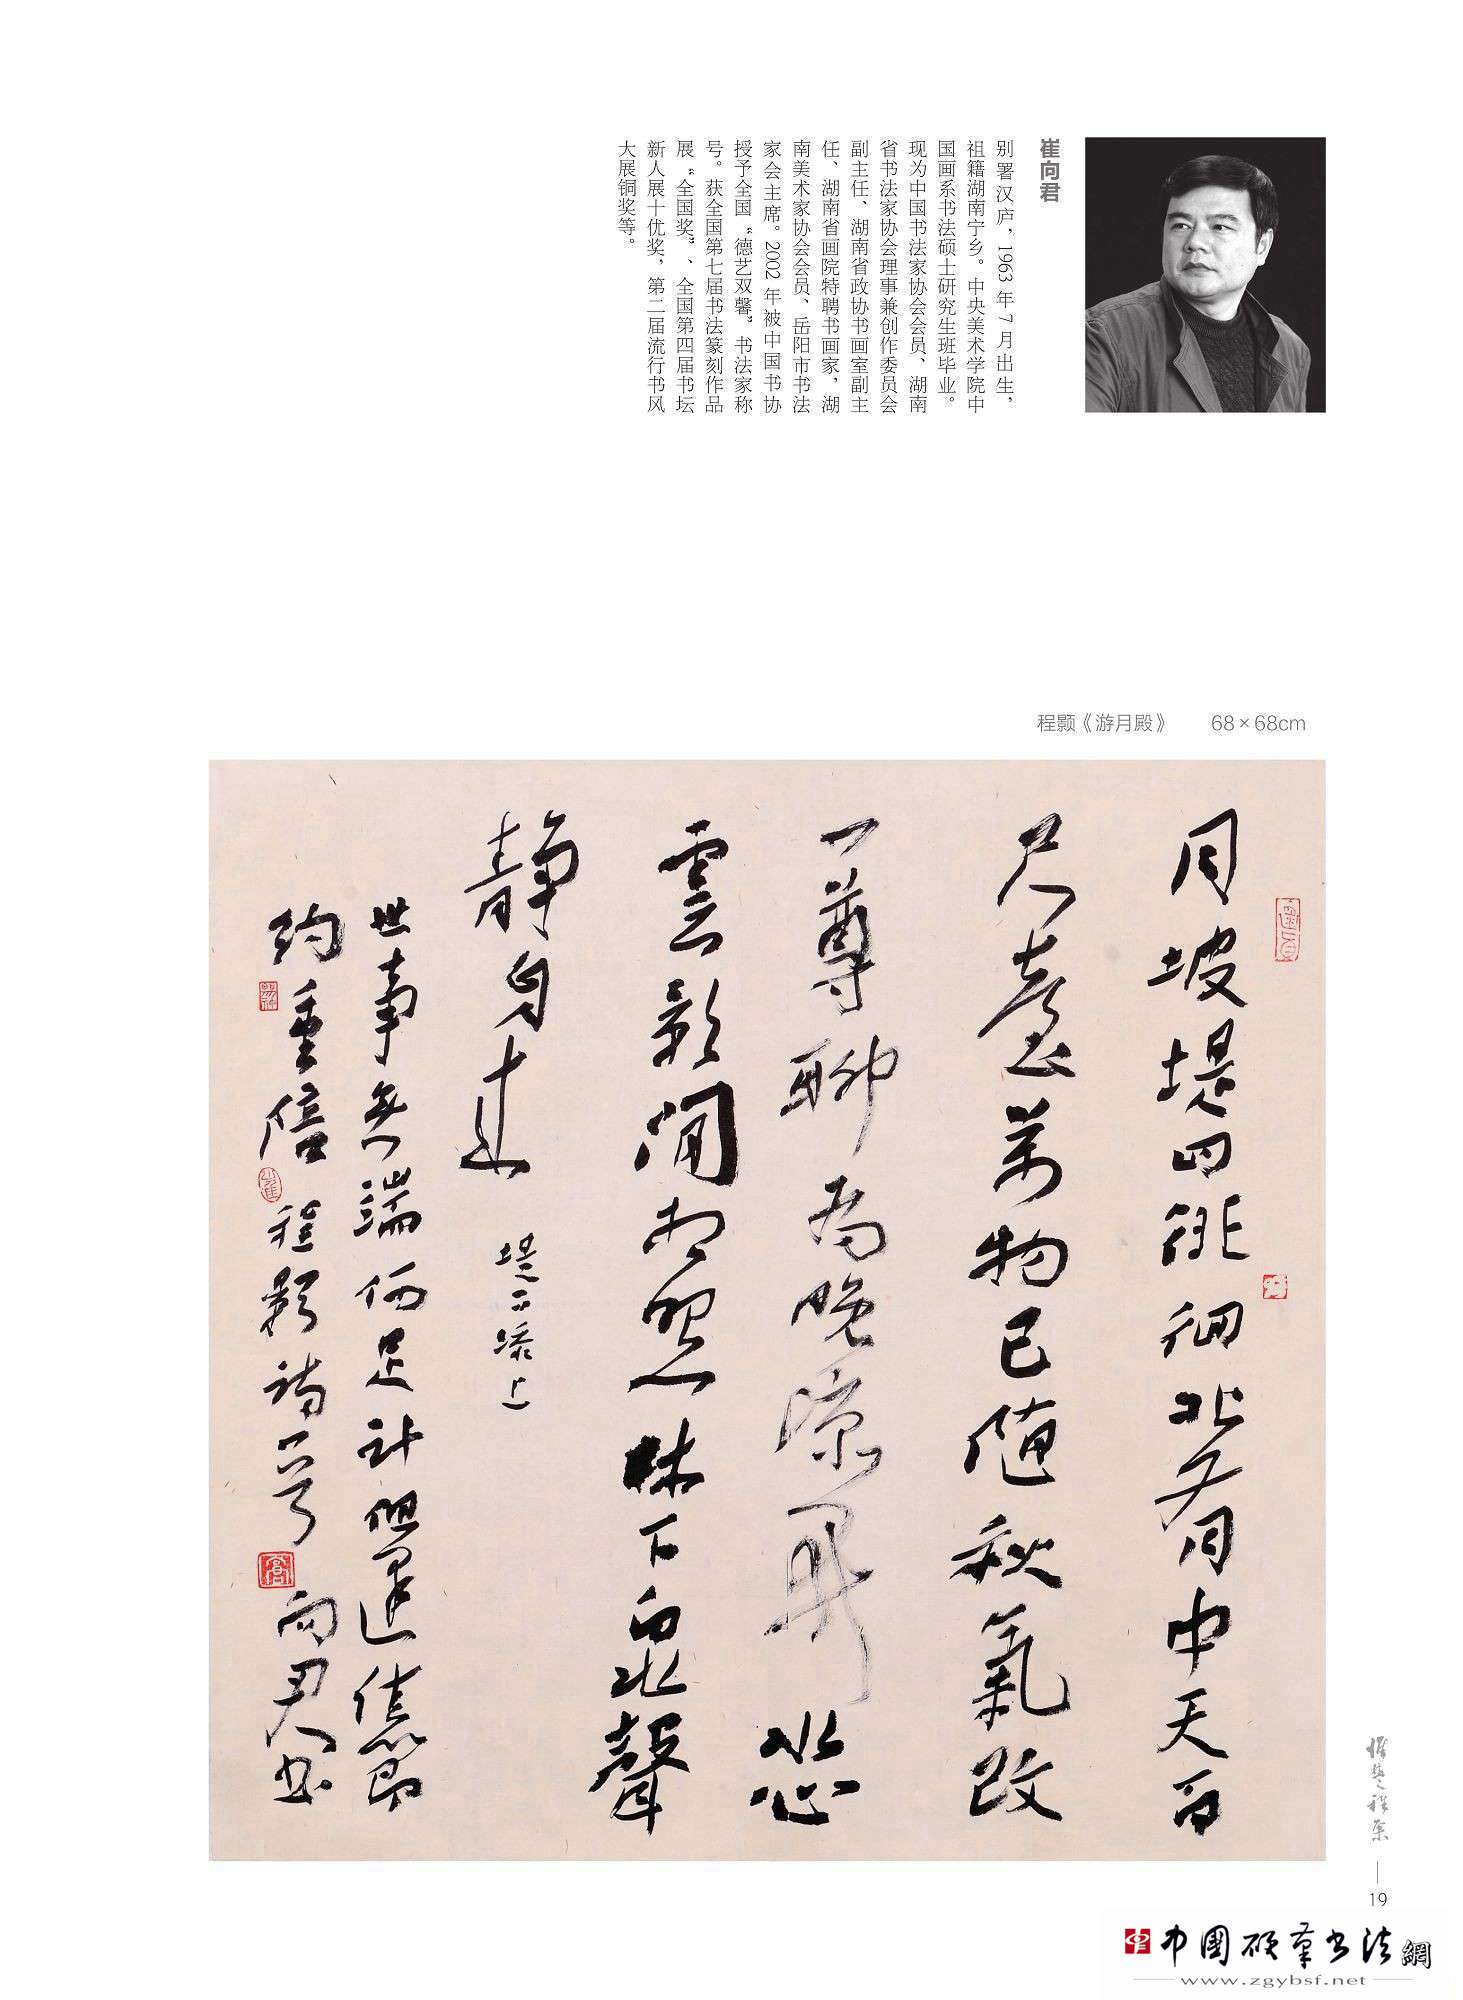 崔向君
别署汉庐，1963年7月出生，
祖籍湖南宁乡。中央美术学院中
国画系书法硕士研究生班毕业。
现为中国书法家协会会员、湖南
省书法家协会理事兼创作委员会
副主任、湖南省政协书画室副主
任、湖南省画院特聘书画家，湖
南美术家协会会员、岳阳市书法
家会主席。2002年被中国书协
授予全国“德艺双馨”书法家称
号。获全国第七届书法篆刻作品
展“全国奖”、全国第四届书坛
新人展十优奖，第二届流行书风
大展铜奖等。
程颢《游月殿》 68×68cm
月坡堤四徘徊北有中天百
尺臺萬物已随秋氣改
一尊聊為晚涼開水心
雲影閒相照林下泉聲
静自来
堤下添上
世事無端何足计但逢佳節
约重陪 程颢诗一首 向君书
19
中国硬笔书法網
www.zgybsf.net